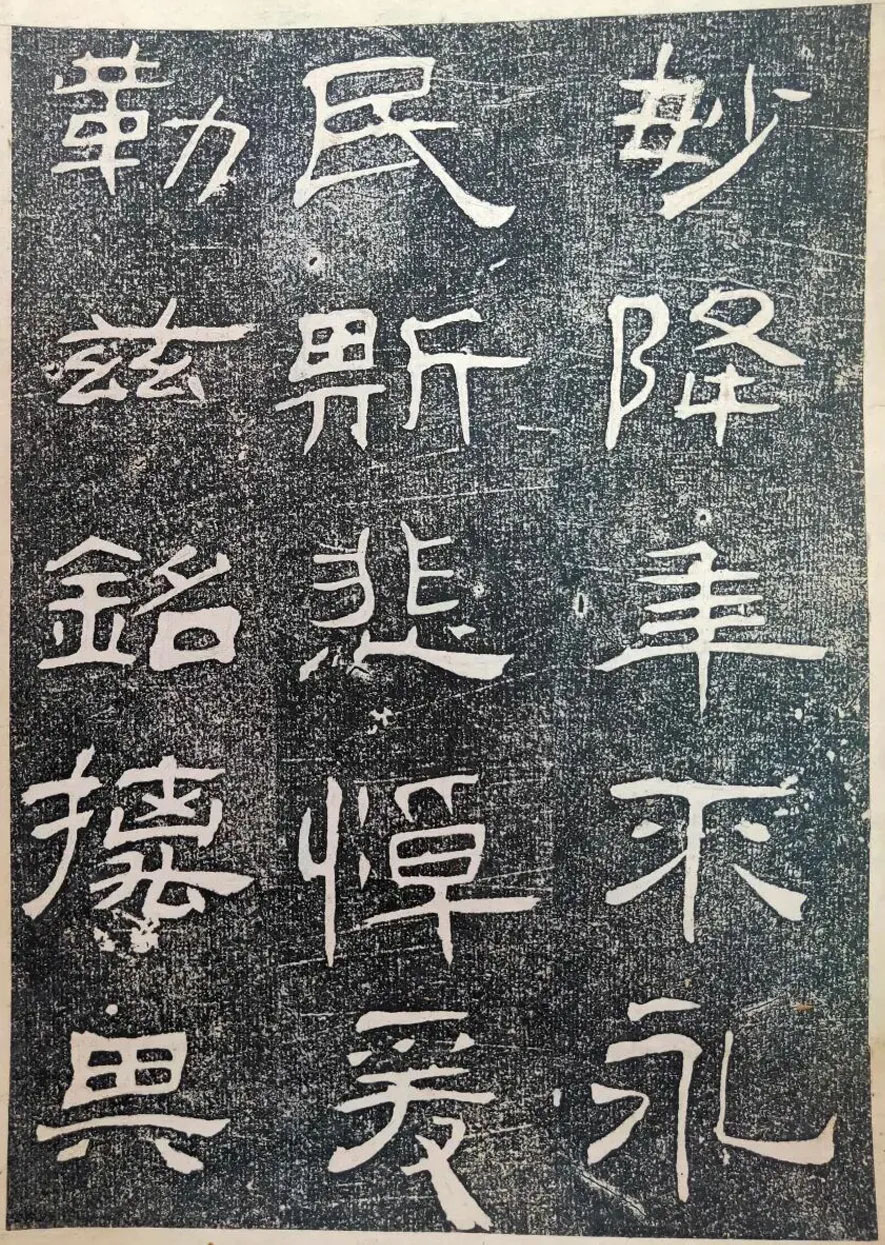 妙降年不永
民斯悲悼爰
勒茲銘摛其